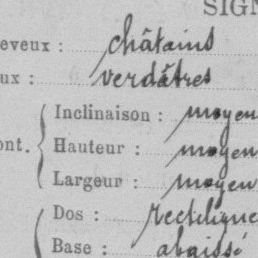 SIGN
eveux : châtains
ux : verdâtres
Inclinaison : moyen
ont. Hauteur : moyen
Largeur : moyen
Dos : rectiligne
Base : abaissé